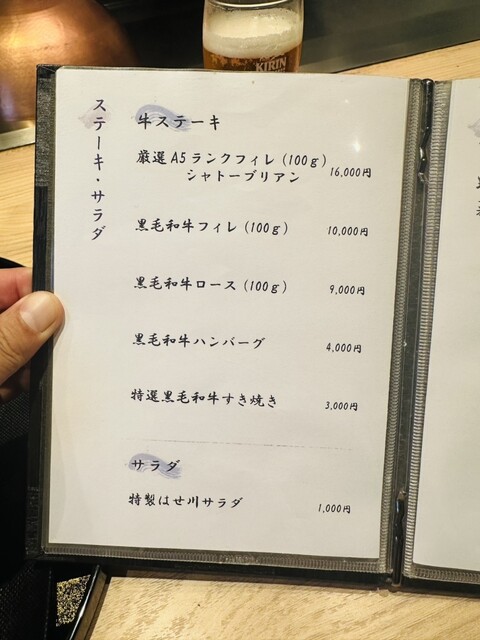 KIRIN
ステーキ・サラダ
牛ステーキ
厳選A5ランクフィレ(100g)
シャトーブリアン 16,000円
黒毛和牛フィレ(100g) 10,000円
黒毛和牛ロース(100g) 9,000円
黒毛和牛ハンバーグ 4,000円
特選黒毛和牛すき焼き 3,000円
サラダ
特製はせ川サラダ 1,000円